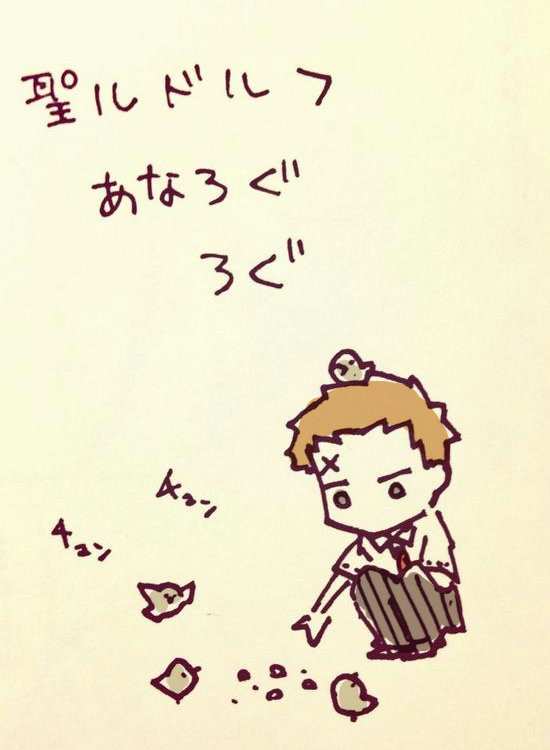 聖ルドルフ
あなろぐ
ろぐ
チュン
チュン